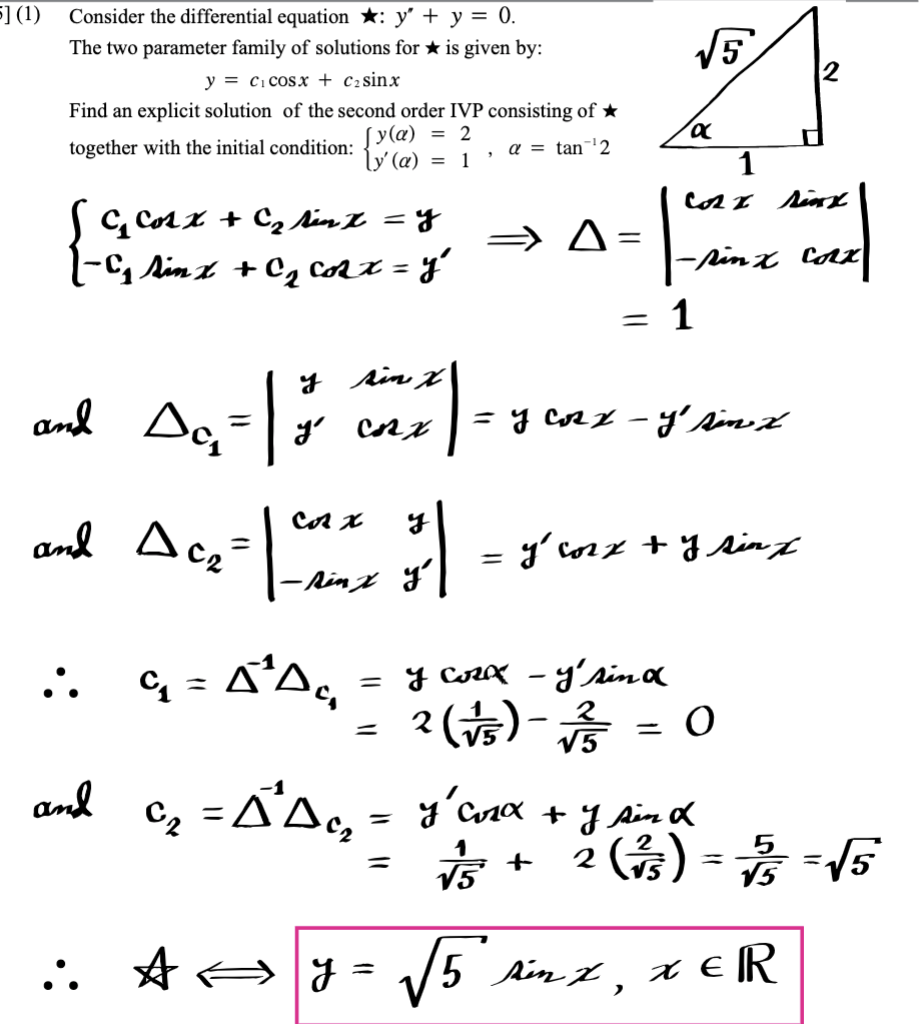 5] (1) Consider the differential equation ★: y″ + y = 0.
The two parameter family of solutions for ★ is given by:
y = c₁cosx + c₂sinx
Find an explicit solution of the second order IVP consisting of ★
together with the initial condition: { y(α) = 2 , y′(α) = 1 , α = tan⁻¹2
√5
2
α
1
{ C₁ cos x + C₂ sin x = y
-C₁ sin x + C₂ cos x = y′
⟹ Δ = | cos x sin x |
| -sin x cos x |
= 1
and Δ_C₁ = | y sin x |
| y′ cos x | = y cos x - y′ sin x
and Δ_C₂ = | cos x y |
| -sin x y′ | = y′ cos x + y sin x
∴ C₁ = Δ⁻¹Δ_C₁ = y cos α - y′ sin α
= 2(1/√5) - 2/√5 = 0
and C₂ = Δ⁻¹Δ_C₂ = y′ cos α + y sin α
= 1/√5 + 2(2/√5) = 5/√5 = √5
∴ ☆ ⟺ y = √5 sin x, x ∈ ℝ